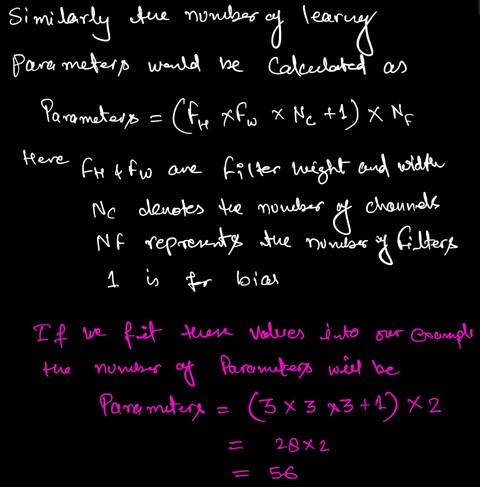 Similarly the number of learng
Parameters would be calculated as
Parameters = (F_H × F_W × N_C + 1) × N_F
Here F_H & F_W are filter height and width
N_C denotes the number of channels
NF represents the number of filters
1 is for bias
If we fit these values into our example
the number of Parameters will be
Parameters = (3 × 3 × 3 + 1) × 2
= 28 × 2
= 56